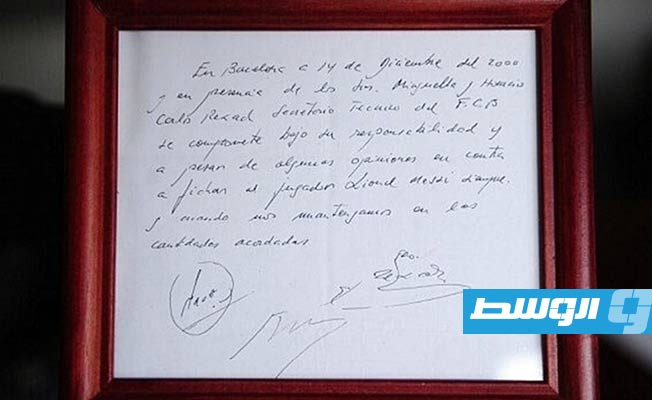 En Barcelona a 14 de Diciembre del 2000
y en presencia de los Srs. Minguella y Horacio
Carlo Rexach Secretario Tecnico del F.C.B
se compromete bajo su responsabilidad y
a pesar de algunas opiniones en contra
a fichar al jugador Lionel Messi siempre
y cuando nos mantengamos en las
cantidades acordadas
الوسط